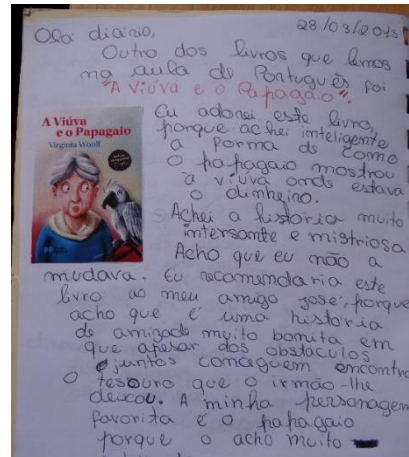 Olá diário, 28/03/2015
Outro dos livros que lemos
na aula de Português foi
"A Viúva e o Papagaio".
Eu adorei este livro,
porque achei inteligente
a forma de como
o papagaio mostrou
à viúva onde estava
o dinheiro.
Achei a história muito
intersante e mistriosa
Acho que eu não a
mudava. Eu recomendaria este
livro ao meu amigo José, porque
acho que é uma história
de amizade muito bonita em
que apesar dos obstaculos
juntos conceguem encontro
o tesouro que o irmão -lhe
deixou. A minha personagem
favorita é o papagaio
porque o acho muito
A Viúva
e o Papagaio
Virginia Woolf